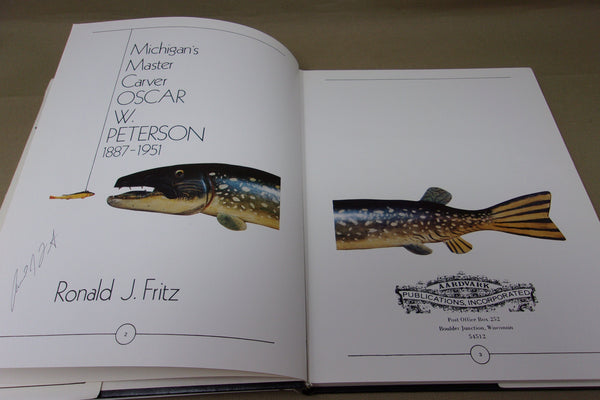 Michigan's
Master
Carver
OSCAR
W.
PETERSON
1887-1951
Ronald J. Fritz
2
AARDVARK
PUBLICATIONS, INCORPORATED
Post Office Box 252
Boulder Junction, Wisconsin
54512
3